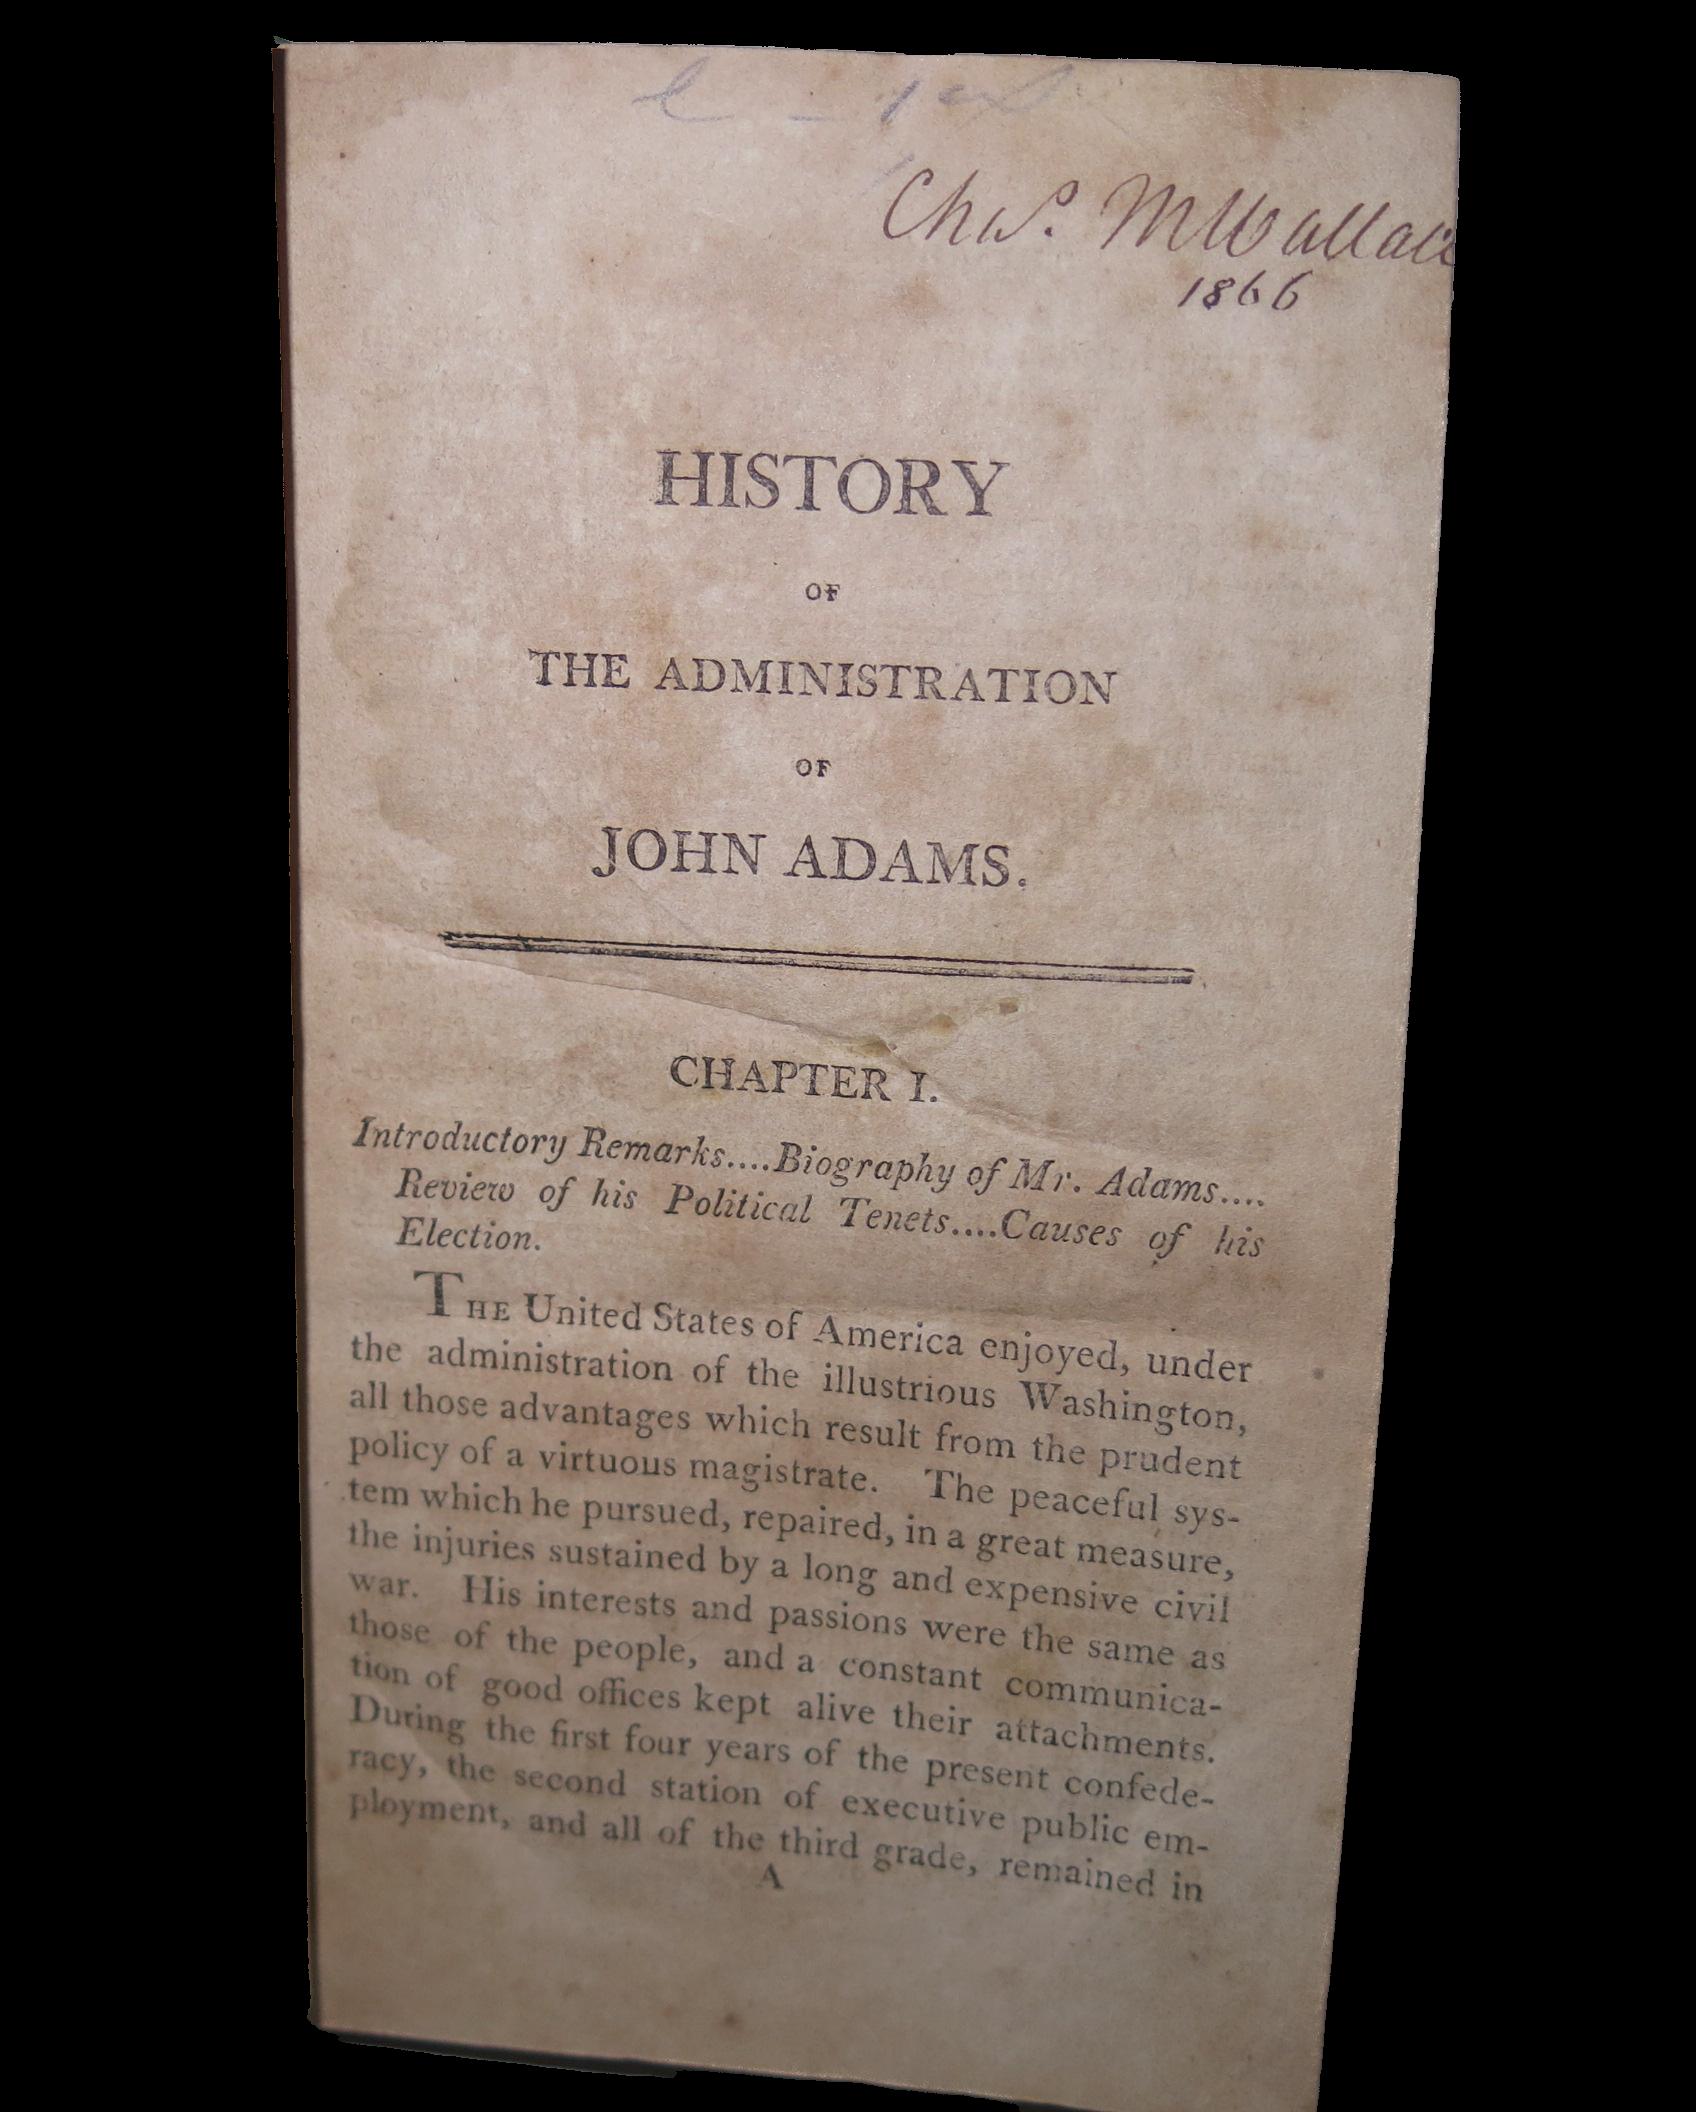 Chas. M Wallace
1866
HISTORY
OF
THE ADMINISTRATION
OF
JOHN ADAMS.
CHAPTER I.
Introductory Remarks....Biography of Mr. Adams....
Review of his Political Tenets....Causes of his
Election.
THE United States of America enjoyed, under
the administration of the illustrious Washington,
all those advantages which result from the prudent
policy of a virtuous magistrate. The peaceful sys-
tem which he pursued, repaired, in a great measure,
the injuries sustained by a long and expensive civil
war. His interests and passions were the same as
those of the people, and a constant communica-
tion of good offices kept alive their attachments.
During the first four years of the present confede-
racy, the second station of executive public em-
ployment, and all of the third grade, remained in
A